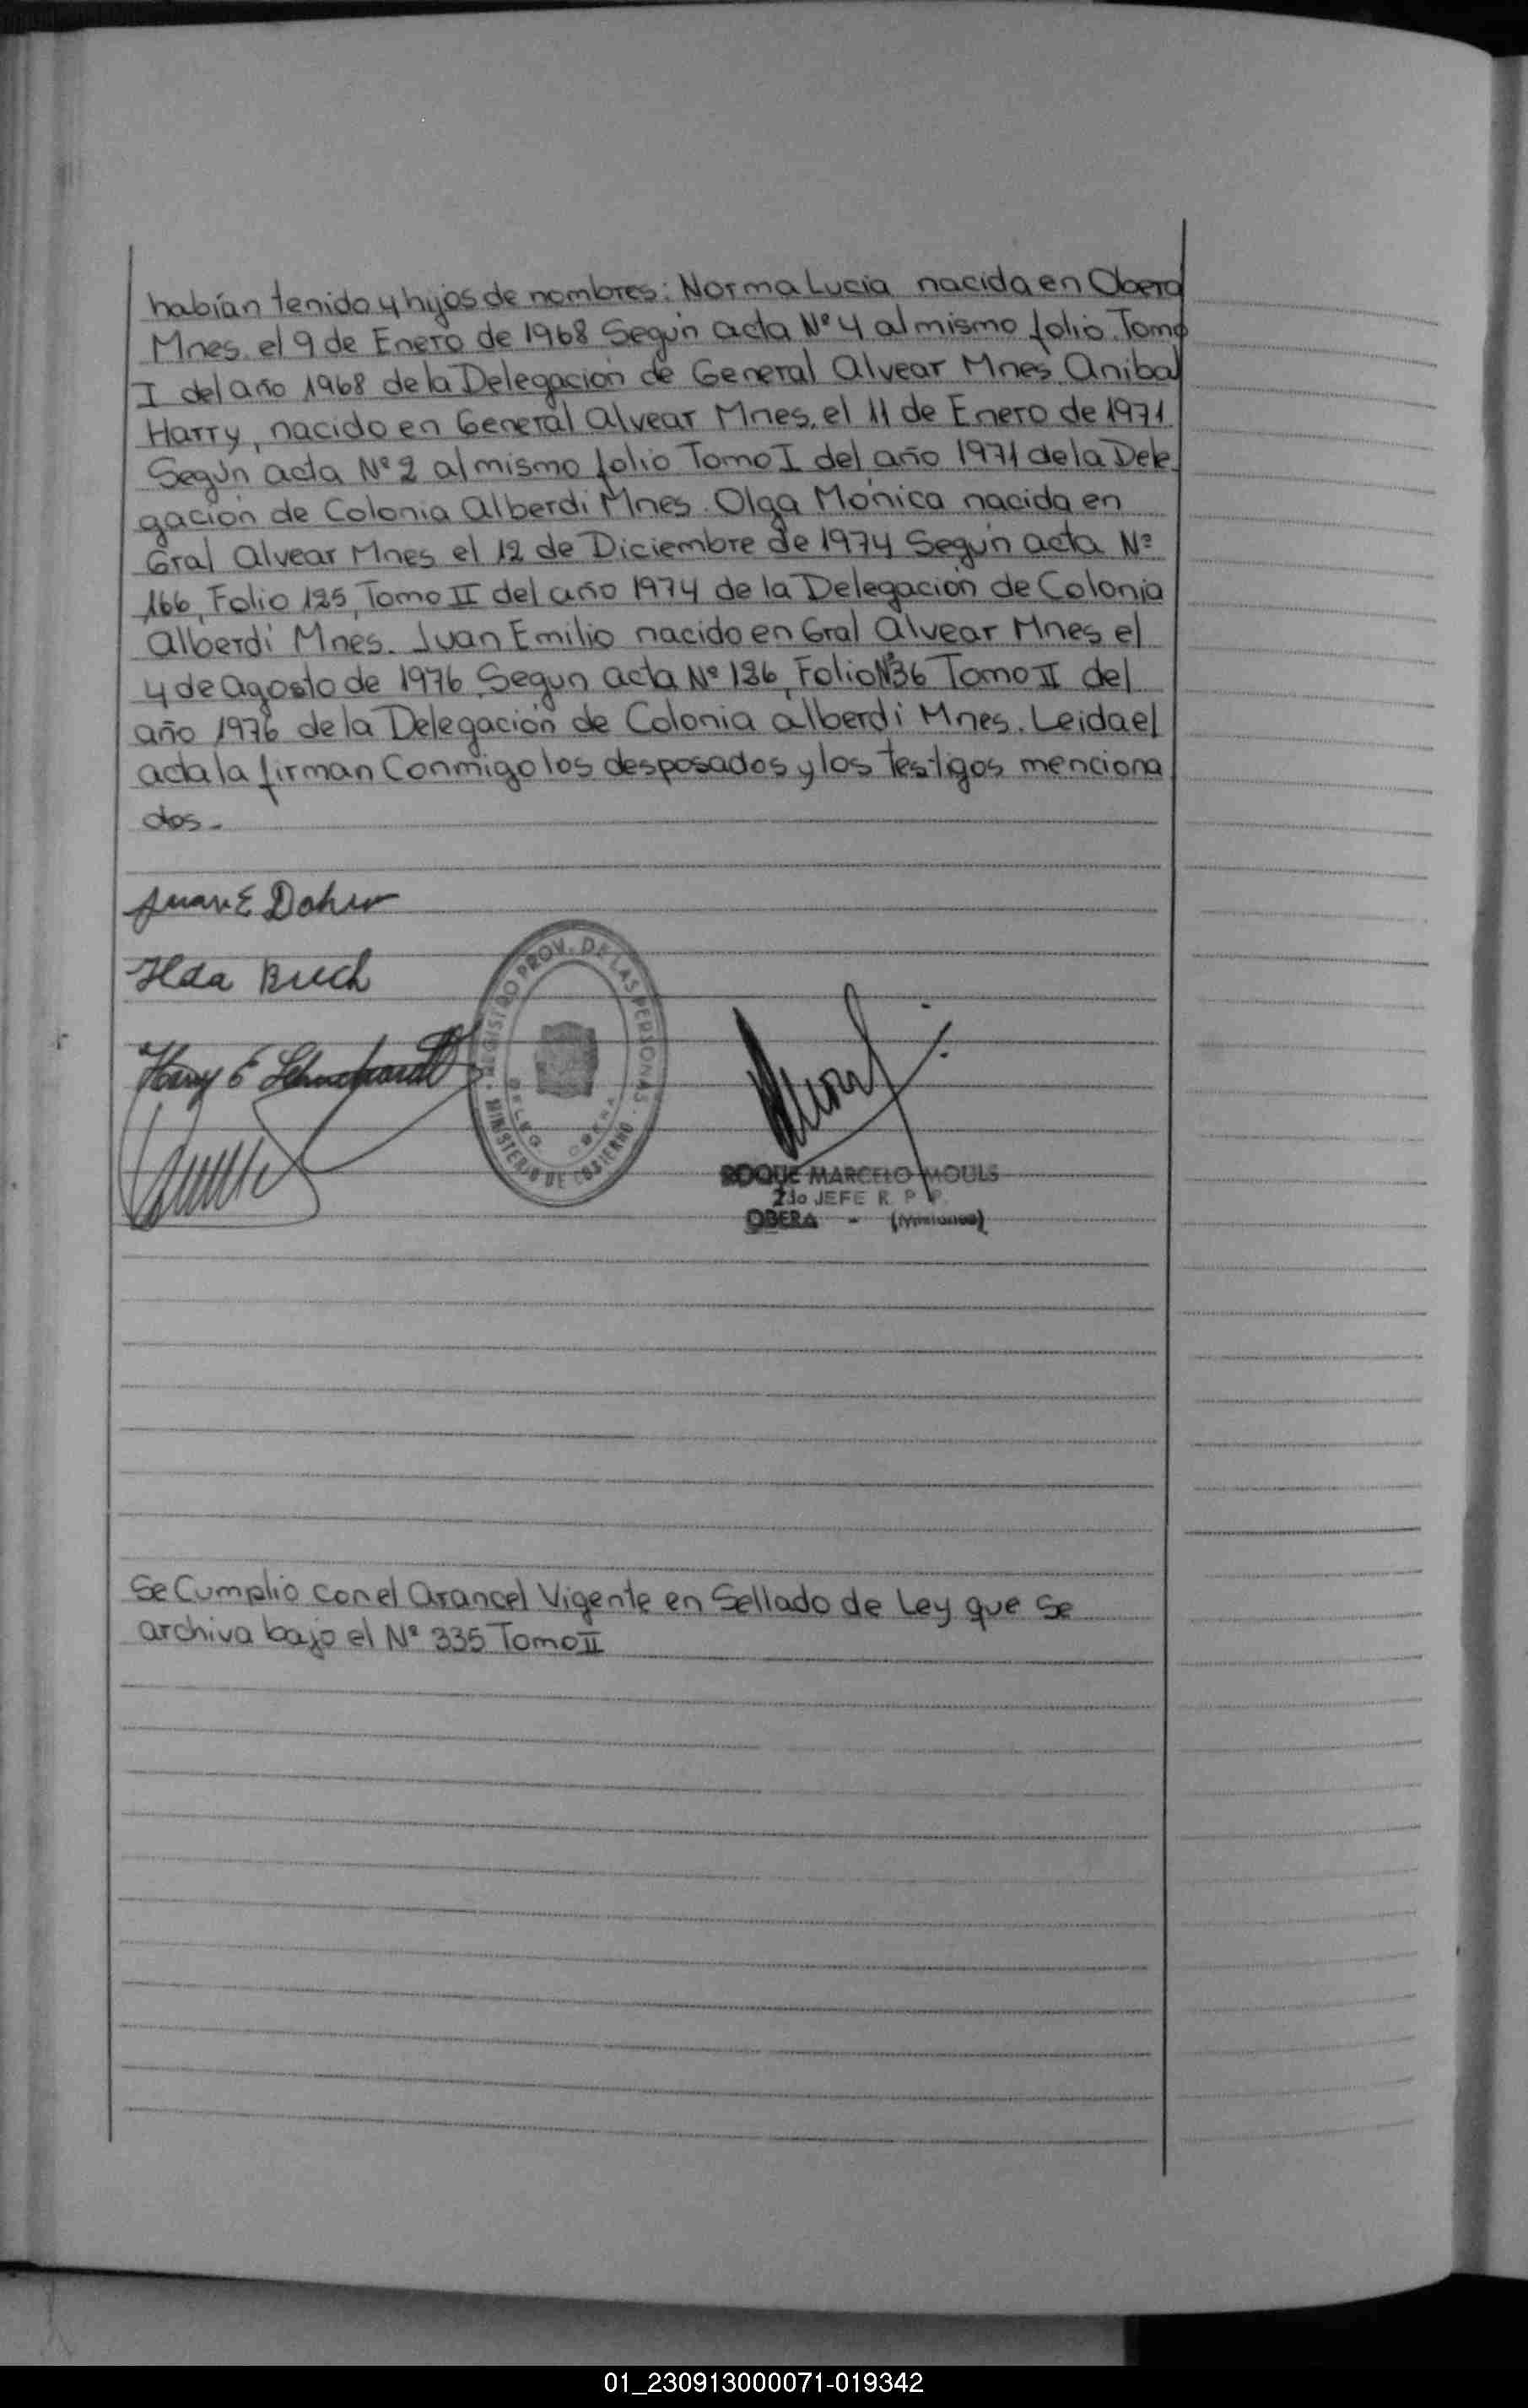 habían tenido 4 hijos de nombres: Norma Lucia nacida en Oberá
Mnes. el 9 de Enero de 1968 Según acta Nº 4 al mismo folio. Tomo
I del año 1968 de la Delegación de General Alvear Mnes. Anibal
Harry, nacido en General Alvear Mnes. el 11 de Enero de 1971.
Según acta Nº 2 al mismo folio Tomo I del año 1971 de la Dele
gación de Colonia Alberdi Mnes. Olga Mónica nacida en
Gral Alvear Mnes el 12 de Diciembre de 1974 Según acta Nº
166, Folio 125, Tomo II del año 1974 de la Delegación de Colonia
Alberdi Mnes. Juan Emilio nacido en Gral Alvear Mnes el
4 de Agosto de 1976. Segun acta Nº 136, Folio Nº36 Tomo II del
año 1976 de la Delegación de Colonia Alberdi Mnes. Leida el
acta la firman Conmigo los desposados y los testigos menciona
dos.
Juan E
Ilda Buch
Harry E
REGISTRO PROV. DE LAS PERSONAS
MINISTERIO DE GOBIERNO
DELEG. OBERA
ROQUE MARCELO MOULS
2do JEFE R. P. P.
OBERA - (Misiones)
Se Cumplio con el Arancel Vigente en Sellado de Ley que Se
archiva bajo el Nº 335 Tomo II
01_230913000071-019342